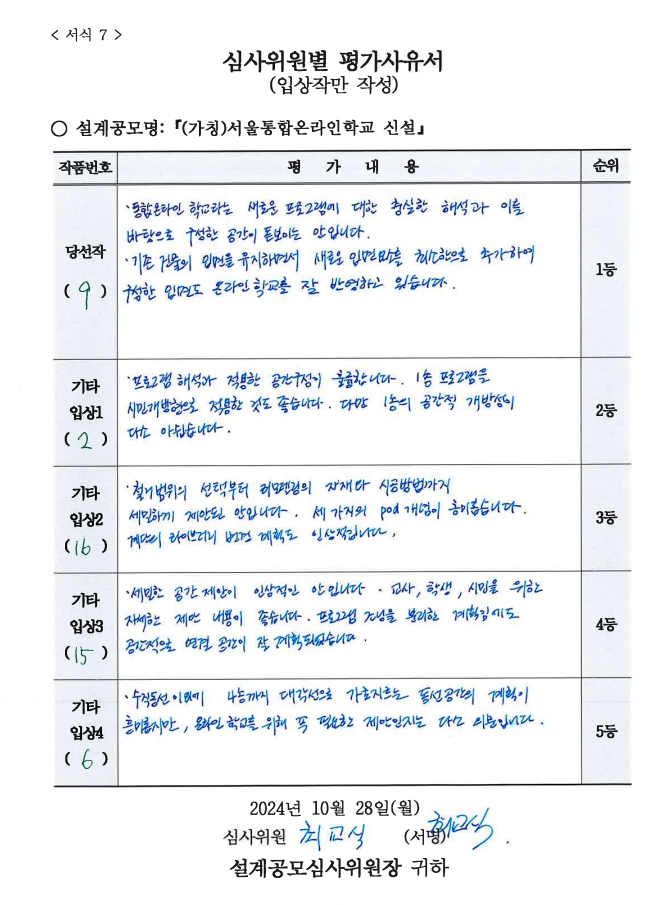 < 서식 7 >
심사위원별 평가사유서
(입상작만 작성)
○ 설계공모명: 『(가칭)서울통합온라인학교 신설』
작품번호 평 가 내 용 순위
당선작
( 9 )
· 통합온라인 학교라는 새로운 프로그램에 대한 충실한 해석과 이를
바탕으로 구성한 공간이 돋보이는 안입니다.
· 기존 건물의 입면을 유지하면서 새로운 입면요소를 최소한으로 추가하여
구성한 입면도 온라인학교를 잘 반영하고 있습니다.
1등
기타
입상1
( 2 )
· 프로그램 해석과 적용한 공간구성이 훌륭합니다. 1층 프로그램을
시민개방형으로 적용한 것도 좋습니다. 다만 1층의 공간적 개방성이
다소 아쉽습니다.
2등
기타
입상2
( 16 )
· 철거범위의 선택부터 리모델링의 자재와 시공방법까지
세밀하게 제안된 안입니다. 세 가지의 pod 개념이 흥미롭습니다.
계단의 라이브러리 변경 계획도 인상적입니다.
3등
기타
입상3
( 15 )
· 세밀한 공간 제안이 인상적인 안입니다. 교사, 학생, 시민을 위한
자세한 제안 내용이 좋습니다. 프로그램 조닝을 분리한 계획임에도
공간적으로 연결 공간이 잘 계획되었습니다.
4등
기타
입상4
( 6 )
· 수직동선 이외에 4층까지 대각선으로 가로지르는 동선공간의 계획이
흥미롭지만, 온라인 학교를 위해 꼭 필요한 제안인지는 다소 의문입니다.
5등
2024년 10월 28일(월)
심사위원 최교식 (서명) 최교식 .
설계공모심사위원장 귀하